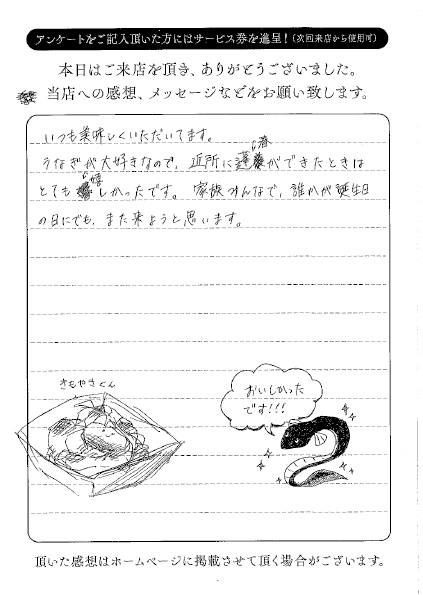 アンケートをご記入頂いた方にはサービス券を進呈!(次回来店から使用可)
本日はご来店を頂き、ありがとうございました。
当店への感想、メッセージなどをお願い致します。
いつも美味しくいただいてます。
うなぎが大好きなので、近所に蓬春ができたときは
とても嬉しかったです。家族みんなで、誰かが誕生日
の日にでも、また来ようと思います。
きもやきくん
おいしかった
です!!!
頂いた感想はホームページに掲載させて頂く場合がございます。